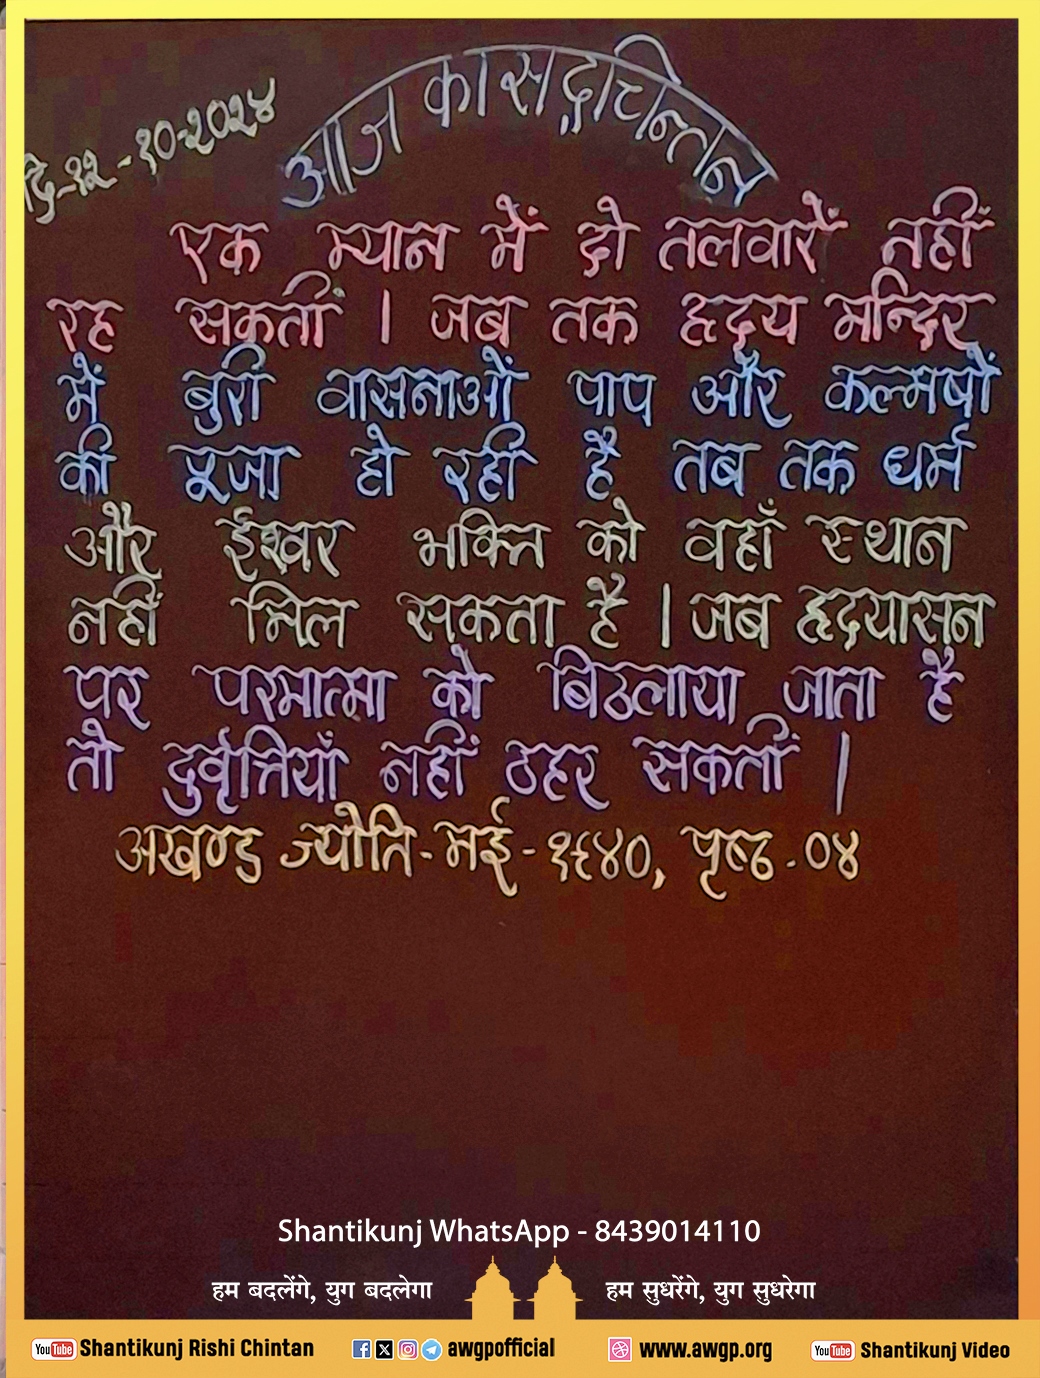 आज का सद्चिन्तन
दि-१२-१०-२०२४
एक म्यान में दो तलवारें नहीं
रह सकतीं । जब तक हृदय मन्दिर
में बुरी वासनाओं पाप और कल्मषों
की पूजा हो रही है तब तक धर्म
और ईश्वर भक्ति को वहाँ स्थान
नहीं मिल सकता है । जब हृदयासन
पर परमात्मा को बिठलाया जाता है
तो दुर्वृत्तियाँ नहीं ठहर सकतीं ।
अखण्ड ज्योति-मई-१९४०, पृष्ठ-०४
Shantikunj WhatsApp - 8439014110
हम बदलेंगे, युग बदलेगा हम सुधरेंगे, युग सुधरेगा
YouTube Shantikunj Rishi Chintan awgpofficial www.awgp.org YouTube Shantikunj Video